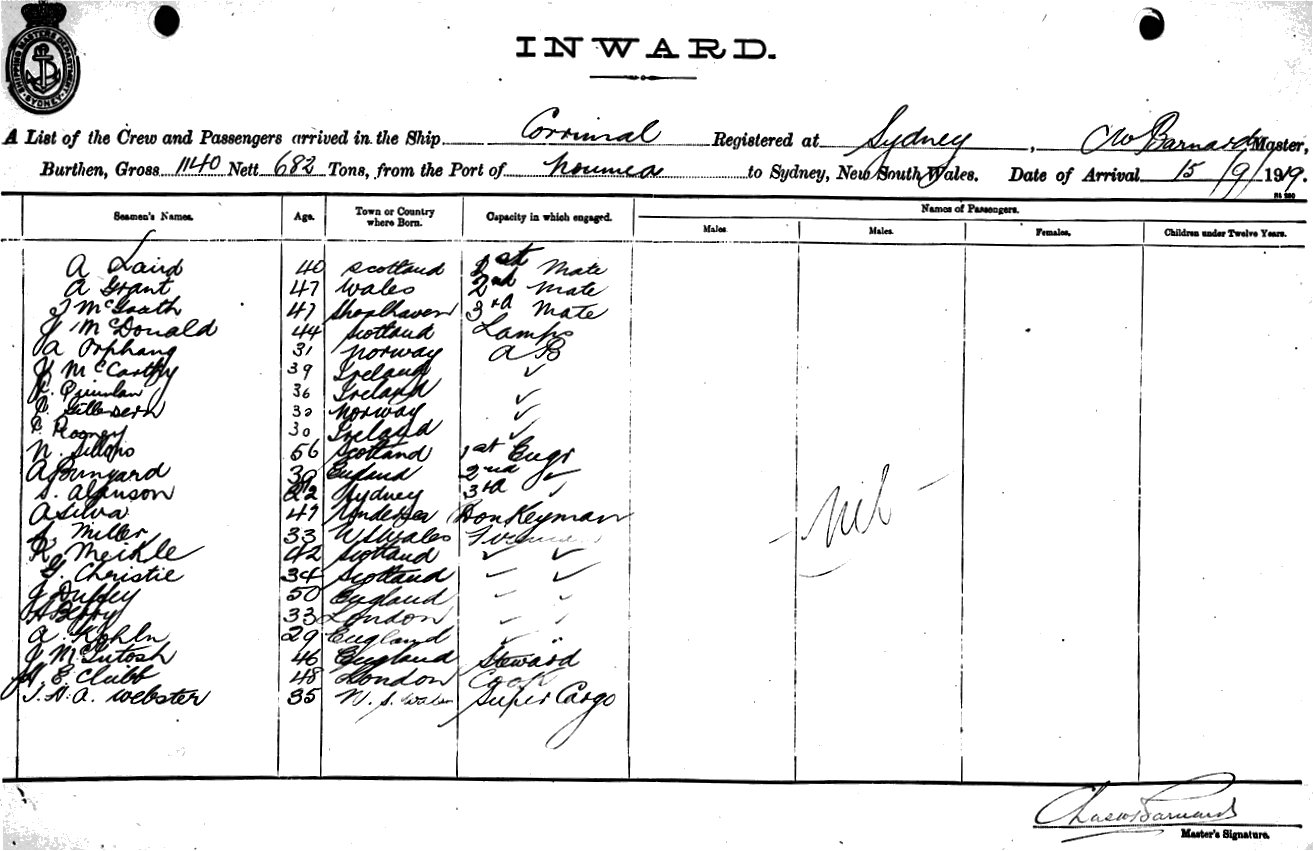 SHIPPING MASTERS DEPARTMENT SYDNEY
INWARD.
A List of the Crew and Passengers arrived in the Ship Corrimal Registered at Sydney, C W Barnard Master,
Burthen, Gross 1140 Nett 682 Tons, from the Port of Noumea to Sydney, New South Wales. Date of Arrival 15/9/1919.
Seamen's Names. Age. Town or Country where Born. Capacity in which engaged. Names of Passengers.
Males. Males. Females. Children under Twelve Years.
A Laird 40 Scotland 1st Mate
A Grant 47 Wales 2nd Mate
47 Shoalhaven 3rd Mate
J McDonald 44 Scotland Lamps
A Orphang 31 Norway A B
J McCarthy 39 Ireland ✓
Quinlan 36 Ireland ✓
30 Norway ✓
Rooney 30 Ireland ✓
N. 56 Scotland 1st Engr
A Bunyard 39 England 2nd ✓
S. 22 Sydney 3rd ✓
A Silva 47 Donkeyman
Miller 33 N S Wales
R Meikle 42 Scotland ✓ ✓
G. Christie 34 Scotland ✓ ✓
J Duffey 50 England ✓ ✓
H Berry 33 London ✓ ✓
A. Kohln 29 England ✓ "
J McIntosh 46 England Steward
H. E. Clubb 48 London Cook
J. H. A. Webster 35 N. S. Wales Super Cargo
- Nil -
Chas W Barnard
Master's Signature.